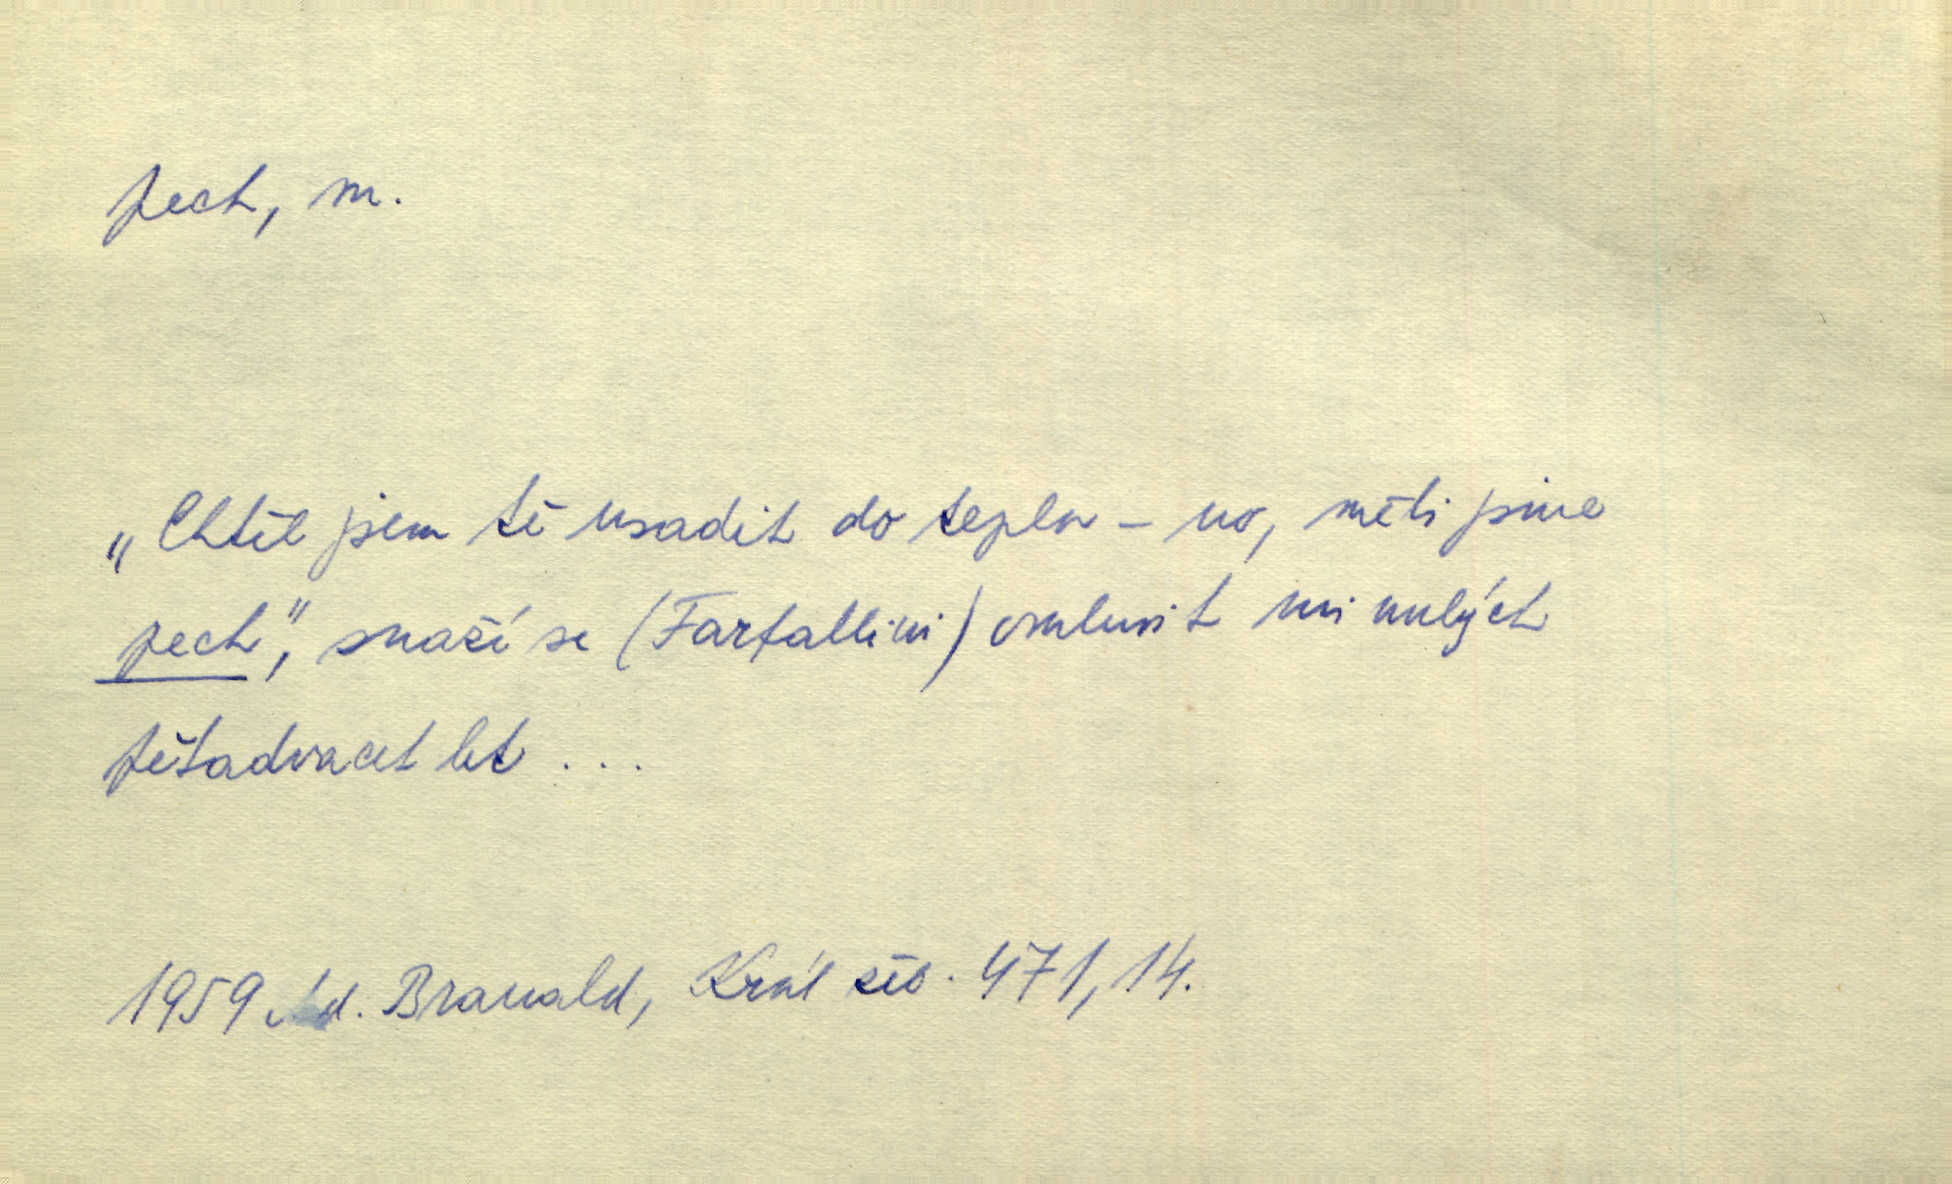 pech, m.
„Chtěl jsem tě usadit do tepla – no, měli jsme
pech", snaží se (Farfallini) omluvit mi uplých
pětadvacet let ...
1959 Ad. Branald, Král žeb. 471, 14.